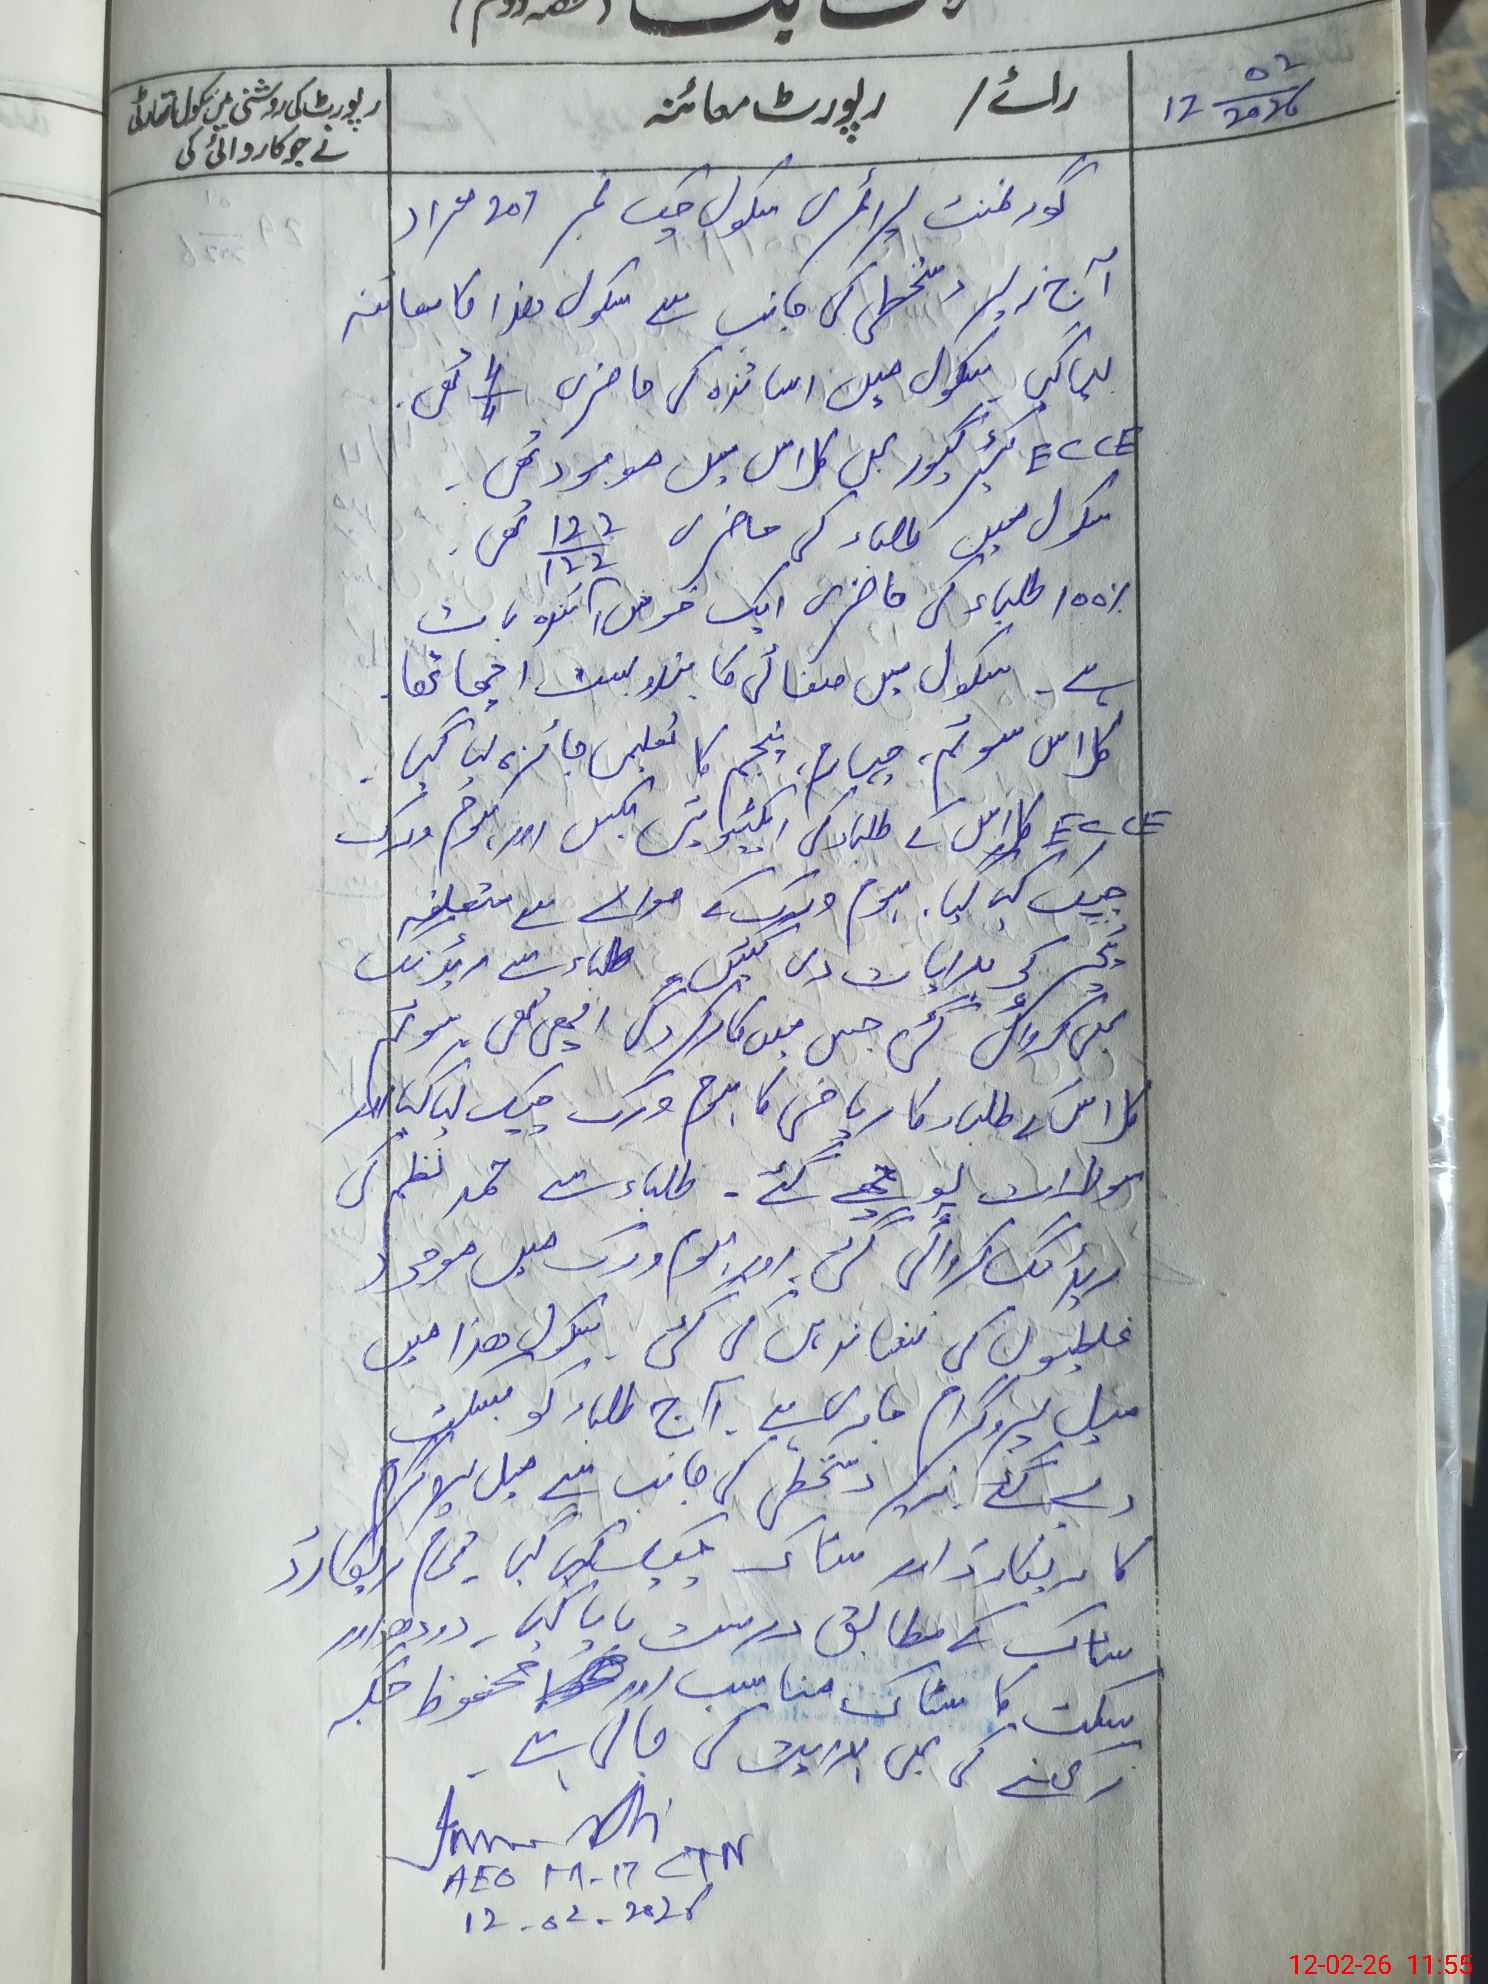 لاگ بک (حصہ دوم)
12 02/2026
رائے / رپورٹ معائنہ
رپورٹ کی روشنی میں سکول اتھارٹی
نے جو کاروائی کی
گورنمنٹ پرائمری سکول چک نمبر 207 مراد
آج زیر دستخطی کی جانب سے سکول ھذا کا معائنہ
کیا گیا۔ سکول میں اساتذہ کی حاضری 4/4 تھی۔
ECCE کیئر گیور بھی کلاس میں موجود تھی۔
سکول میں طلباء کی حاضری 122/122 تھی۔
100% طلباء کی حاضری ایک خوش آئندہ بات
ہے۔ سکول میں صفائی کا بندوبست اچھا تھا۔
کلاس سوئم، چہارم، پنجم کا تعلیمی جائزہ لیا گیا۔
ECCE کلاس کے طلباء کی ایکٹیویٹی بکس اور ہوم ورک
چیک کیا گیا۔ ہوم ورک کے حوالے سے متعلقہ
ٹیچر کو ہدایات دی گئیں۔ طلباء سے ریڈنگ
بھی کروائی گئی جس میں کارکردگی اچھی تھی۔ سوئم
کلاس کے طلباء کا ریاضی کا ہوم ورک چیک کیا گیا اور
سوالات پوچھے گئے۔ طلباء سے حمد نظم کی
ریڈنگ کروائی گئی۔ اور ہوم ورک میں موجود
غلطیوں کی نشاندہی کی گئی۔ سکول ھذا میں
میل پروگرام جاری ہے۔ آج طلباء کو بسکٹ
دیے گئے۔ زیر دستخطی کی جانب سے میل پروگرام
کا ریکارڈ اور سٹاک چیک کیا گیا۔ تمام ریکارڈ
سٹاک کے مطابق درست پایا گیا۔ دودھ اور
بسکٹ کا سٹاک مناسب اور محفوظ جگہ
رکھنے کی بھی ہدایت کی جاتی ہے۔
AEO M-17 CTN
12-02-2026
12-02-26 11:55